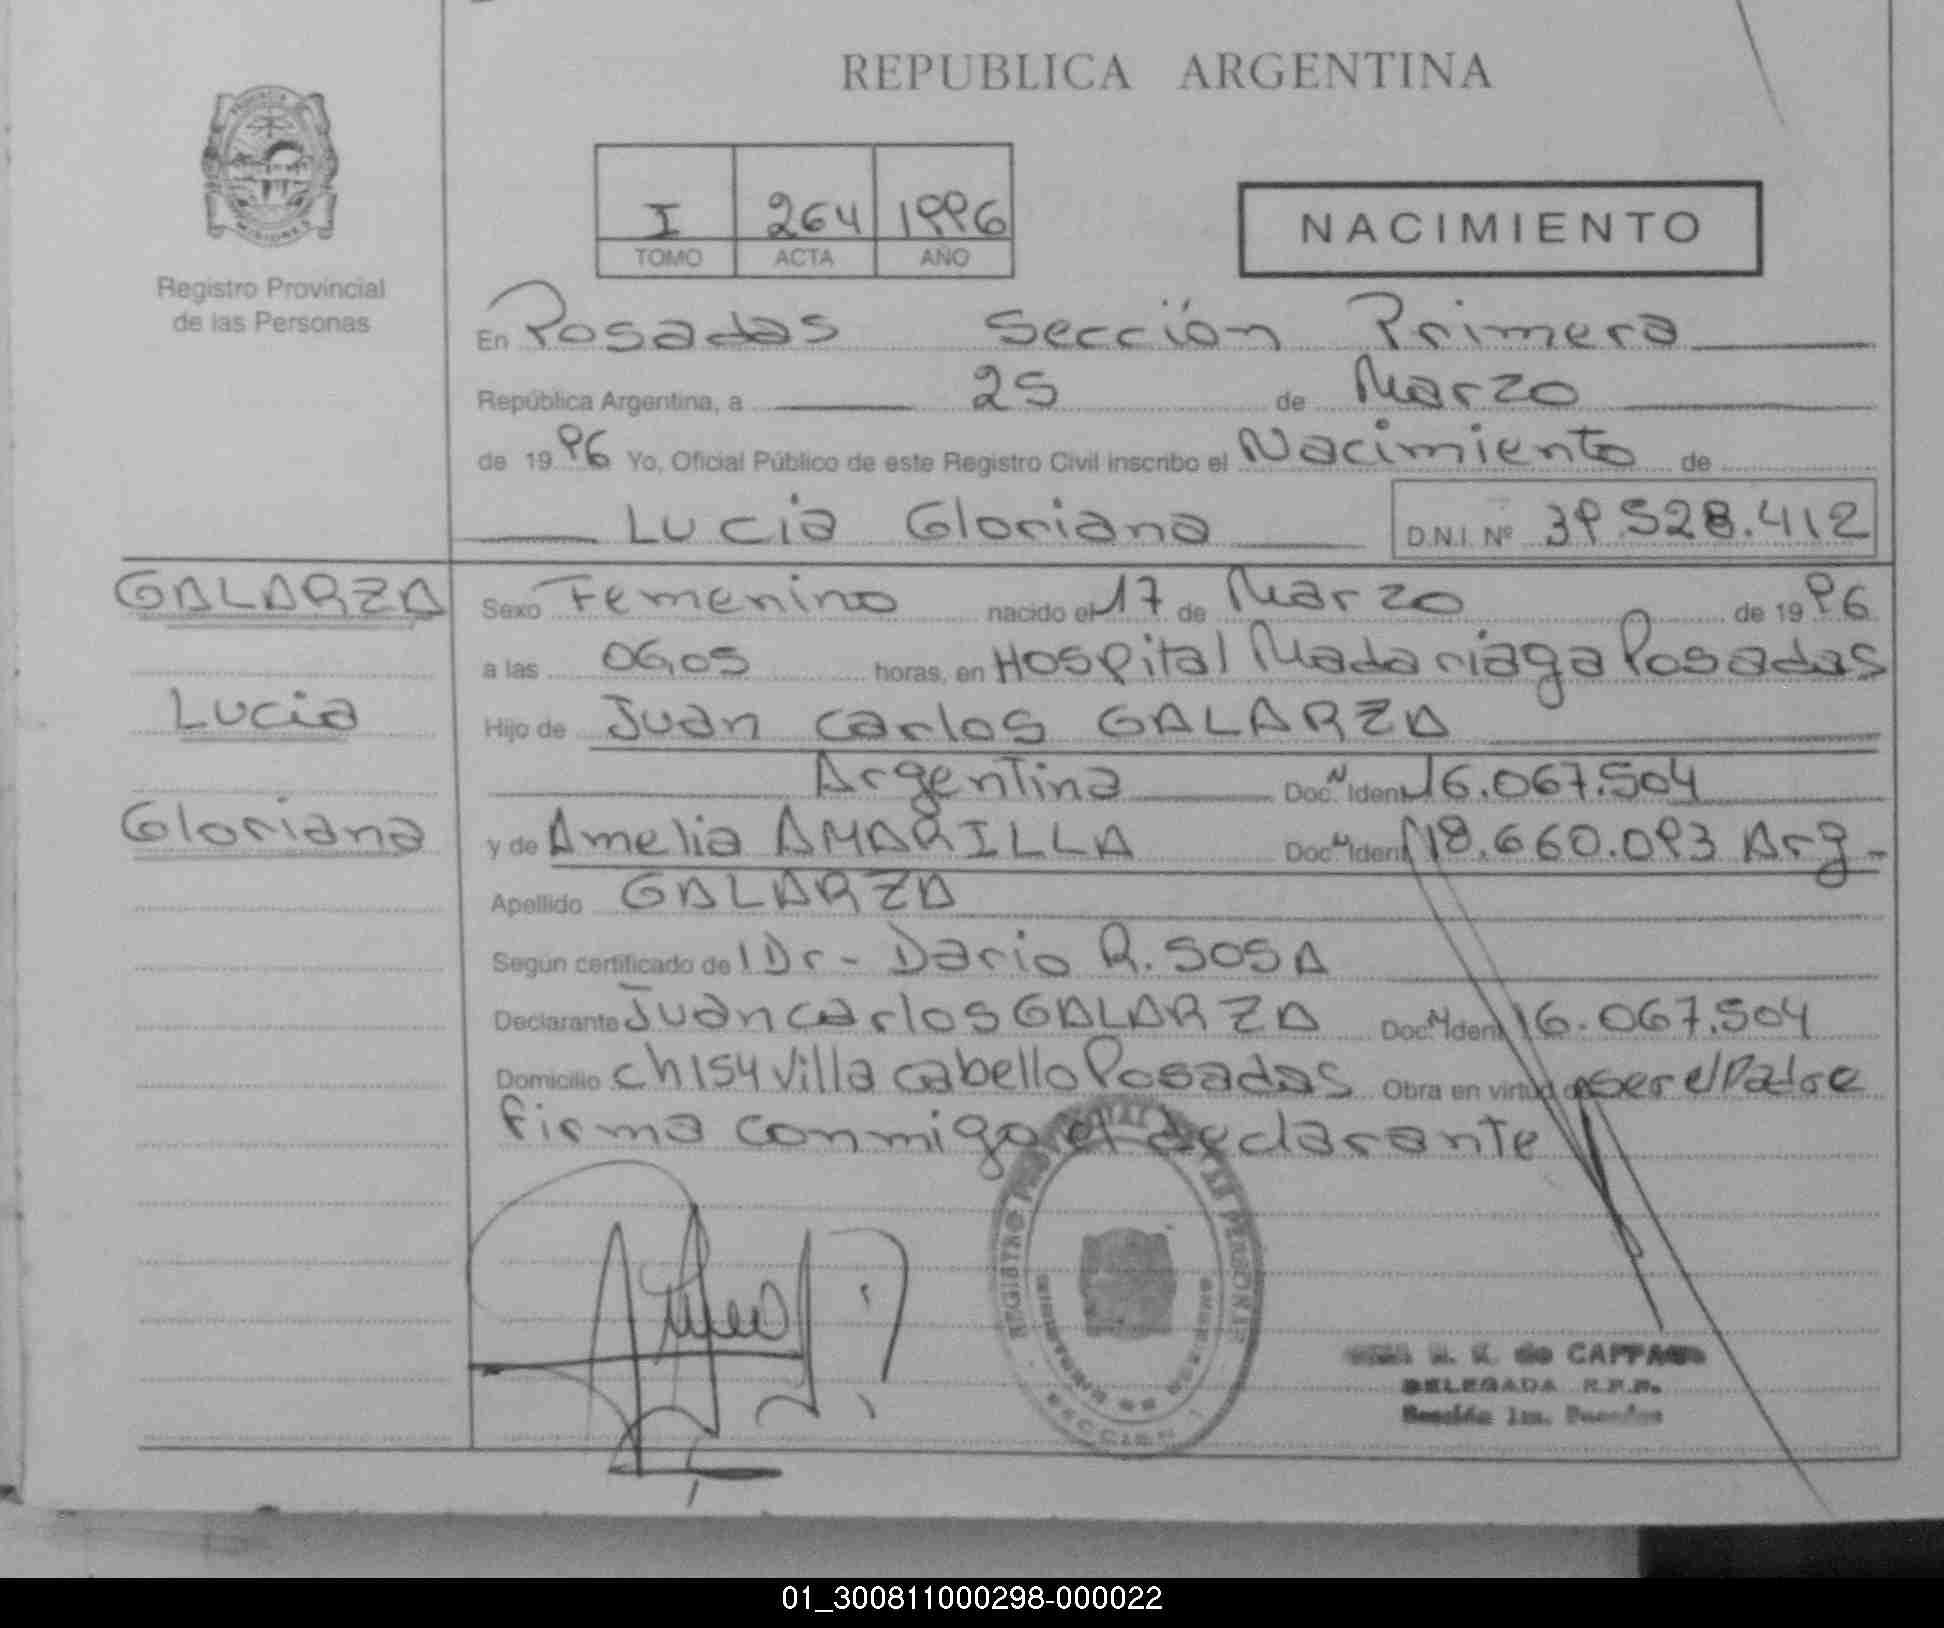 REPUBLICA ARGENTINA
PROVINCIA
MISIONES
Registro Provincial
de las Personas
I 264 1996
TOMO ACTA AÑO
NACIMIENTO
En Posadas Sección Primera
República Argentina, a 25 de Marzo
de 1996 Yo, Oficial Público de este Registro Civil inscribo el Nacimiento de
Lucia Gloriana D.N.I. Nº 39.528.412
GALARZA
Lucia
Gloriana
Sexo Femenino nacido el 17 de Marzo de 1996
a las 06,05 horas, en Hospital Madariaga Posadas
Hijo de Juan Carlos GALARZA
Argentina Doc. N Iden 16.067.504
y de Amelia AMARILLA Doc. N Iden 18.660.093 Arg-
Apellido GALARZA
Según certificado del Dr- Dario R. SOSA
Declarante Juan Carlos GALARZA Doc. N Iden 16.067.504
Domicilio ch 154 Villa Cabello Posadas Obra en virtud de ser el Padre
Firma conmigo el declarante
REGISTRO
SECCION
de CAPPAGO
DELEGADA R.P.P.
Sección 1ra. Posadas
01_300811000298-000022